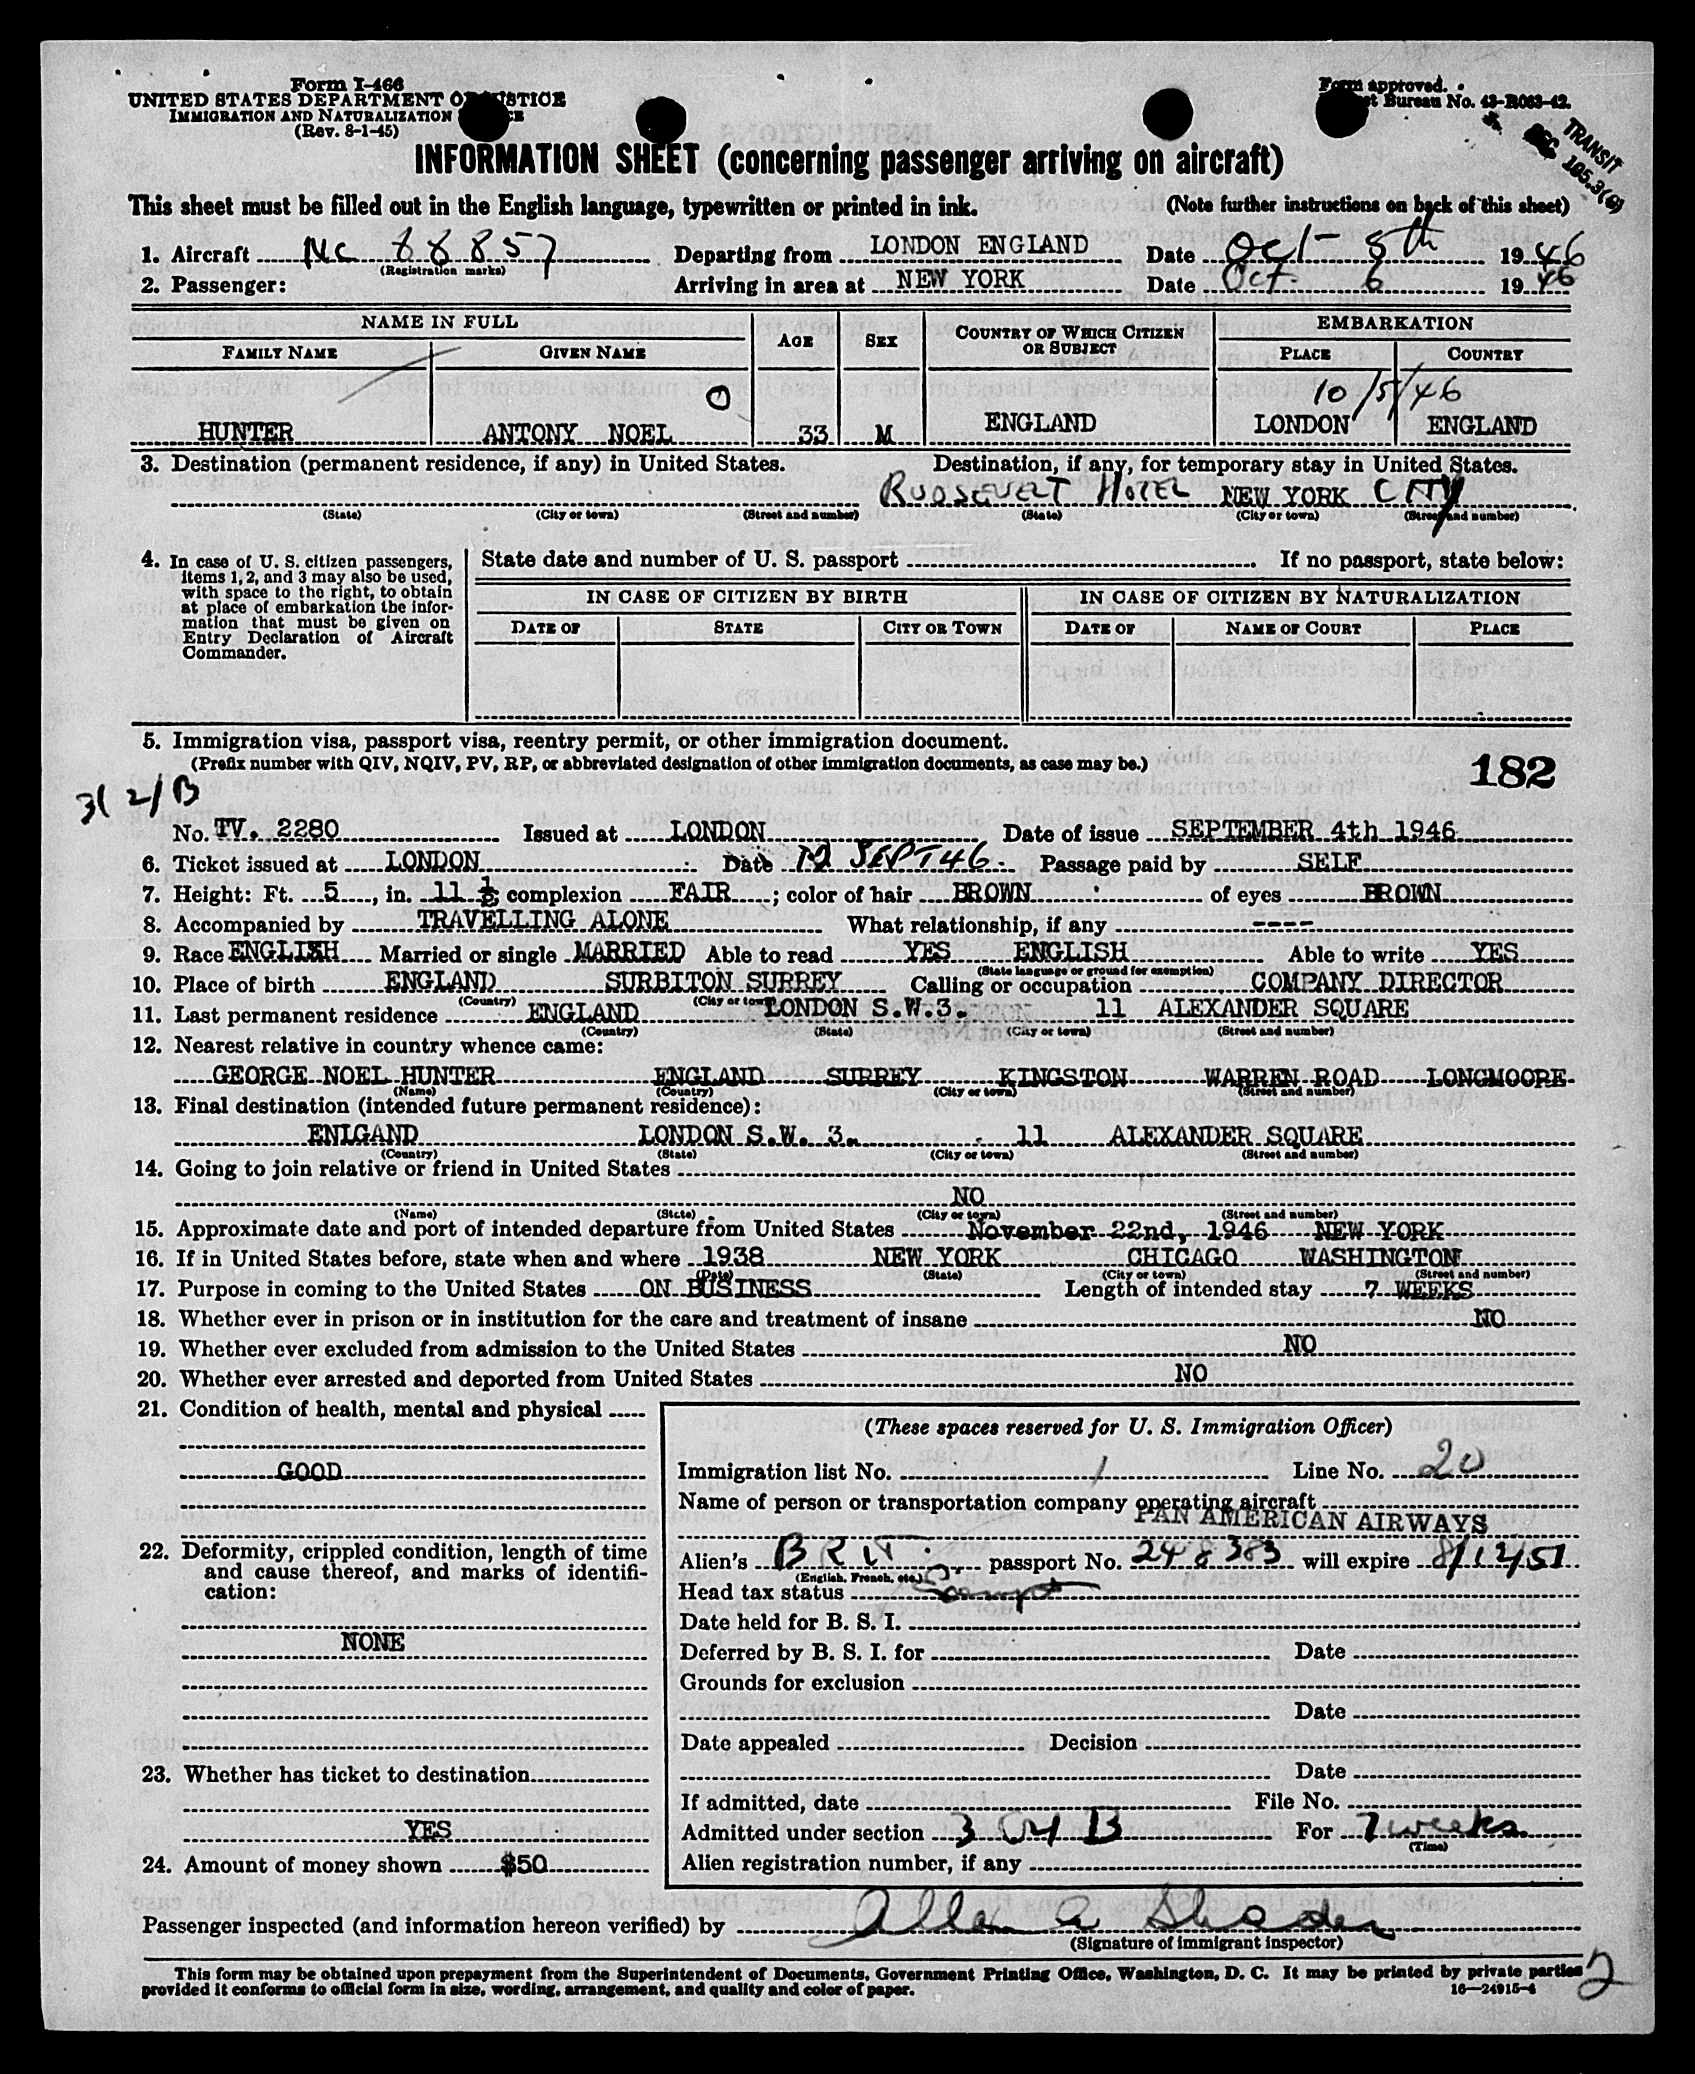 Form I-466
UNITED STATES DEPARTMENT OF JUSTICE
IMMIGRATION AND NATURALIZATION
(Rev. 8-1-45)
Form approved.
Bureau No. 43-R063-42.
TRANSIT
SEC 105.3(6)
INFORMATION SHEET (concerning passenger arriving on aircraft)
This sheet must be filled out in the English language, typewritten or printed in ink. (Note further instructions on back of this sheet)
1. Aircraft NC 88857 Departing from LONDON ENGLAND Date Oct- 5th 1946
(Registration marks)
2. Passenger: Arriving in area at NEW YORK Date Oct. 6 1946
NAME IN FULL AGE SEX COUNTRY OF WHICH CITIZEN OR SUBJECT EMBARKATION
FAMILY NAME GIVEN NAME PLACE COUNTRY
O 10/5/46
HUNTER ANTONY NOEL 33 M ENGLAND LONDON ENGLAND
3. Destination (permanent residence, if any) in United States. Destination, if any, for temporary stay in United States.
ROOSEVELT HOTEL NEW YORK CITY
(State) (City or town) (Street and number) (State) (City or town) (Street and number)
4. In case of U. S. citizen passengers, items 1, 2, and 3 may also be used, with space to the right, to obtain at place of embarkation the information that must be given on Entry Declaration of Aircraft Commander.
State date and number of U. S. passport If no passport, state below:
IN CASE OF CITIZEN BY BIRTH IN CASE OF CITIZEN BY NATURALIZATION
DATE OF STATE CITY OR TOWN DATE OF NAME OF COURT PLACE
5. Immigration visa, passport visa, reentry permit, or other immigration document.
(Prefix number with QIV, NQIV, PV, RP, or abbreviated designation of other immigration documents, as case may be.) 182
3(2)B
No. TV. 2280 Issued at LONDON Date of issue SEPTEMBER 4th 1946
6. Ticket issued at LONDON Date 12 SEPT 46. Passage paid by SELF
7. Height: Ft. 5, in. 11 ½; complexion FAIR; color of hair BROWN of eyes BROWN
8. Accompanied by TRAVELLING ALONE What relationship, if any ----
9. Race ENGLISH Married or single MARRIED Able to read YES ENGLISH Able to write YES
(State language or ground for exemption)
10. Place of birth ENGLAND SURBITON SURREY Calling or occupation COMPANY DIRECTOR
(Country) (City or town)
11. Last permanent residence ENGLAND LONDON S.W.3. 11 ALEXANDER SQUARE
(Country) (State) (City or town) (Street and number)
12. Nearest relative in country whence came:
GEORGE NOEL HUNTER ENGLAND SURREY KINGSTON WARREN ROAD LONGMOORE
(Name) (Country) (City or town) (Street and number)
13. Final destination (intended future permanent residence):
ENLGAND LONDON S.W. 3. 11 ALEXANDER SQUARE
(Country) (State) (City or town) (Street and number)
14. Going to join relative or friend in United States
NO
(Name) (State) (City or town) (Street and number)
15. Approximate date and port of intended departure from United States November 22nd, 1946 NEW YORK
16. If in United States before, state when and where 1938 NEW YORK CHICAGO WASHINGTON
(Date) (State) (City or town) (Street and number)
17. Purpose in coming to the United States ON BUSINESS Length of intended stay 7 WEEKS
18. Whether ever in prison or in institution for the care and treatment of insane NO
19. Whether ever excluded from admission to the United States NO
20. Whether ever arrested and deported from United States NO
21. Condition of health, mental and physical
GOOD
22. Deformity, crippled condition, length of time and cause thereof, and marks of identification:
NONE
23. Whether has ticket to destination
YES
24. Amount of money shown $50
(These spaces reserved for U. S. Immigration Officer)
Immigration list No. 1 Line No. 20
Name of person or transportation company operating aircraft
PAN AMERICAN AIRWAYS
Alien's BRIT. passport No. 248383 will expire 8/12/51
(English, French, etc.)
Head tax status Exempt
Date held for B. S. I.
Deferred by B. S. I. for Date
Grounds for exclusion
Date
Date appealed Decision
Date
If admitted, date File No.
Admitted under section 3 (2) B For 7 weeks
(Time)
Alien registration number, if any
Passenger inspected (and information hereon verified) by Allen A
(Signature of immigrant inspector)
This form may be obtained upon prepayment from the Superintendent of Documents, Government Printing Office, Washington, D. C. It may be printed by private parties
provided it conforms to official form in size, wording, arrangement, and quality and color of paper. 16—24915-4
2